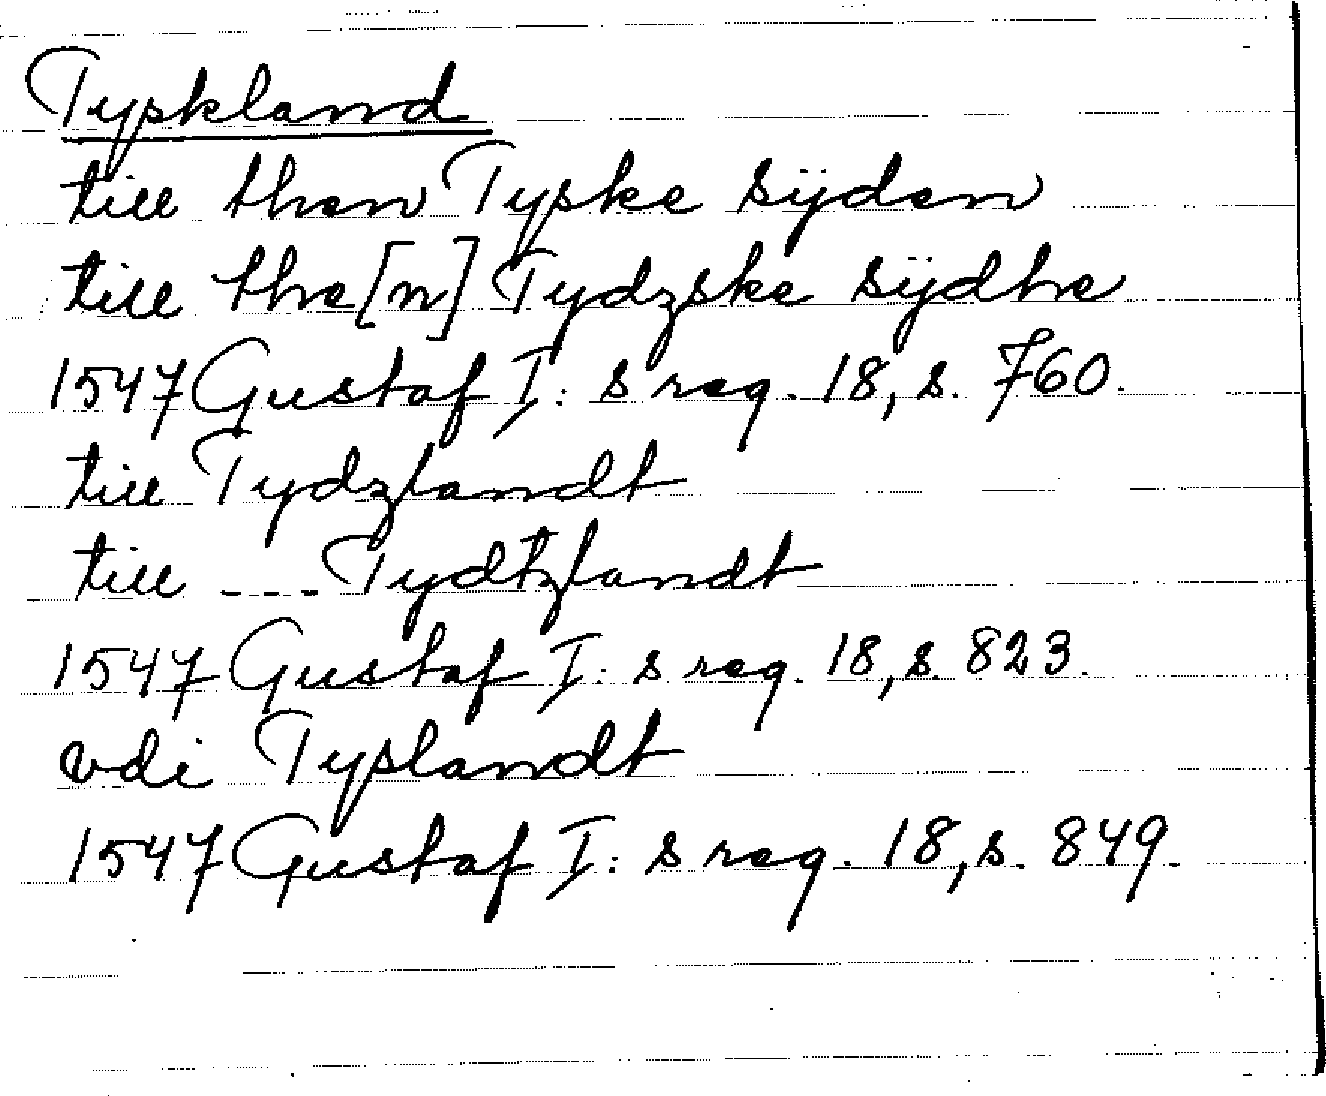 Tyskland
till then Tyske sijden
till the[n] Tydzske sijdhe
1547 Gustaf I: s reg. 18, s. 760.
till Tydzlandt
till --- Tydtzlandt
1547 Gustaf I: s reg. 18, s. 823.
vdi Tyslandt
1547 Gustaf I: s reg. 18, s. 849.